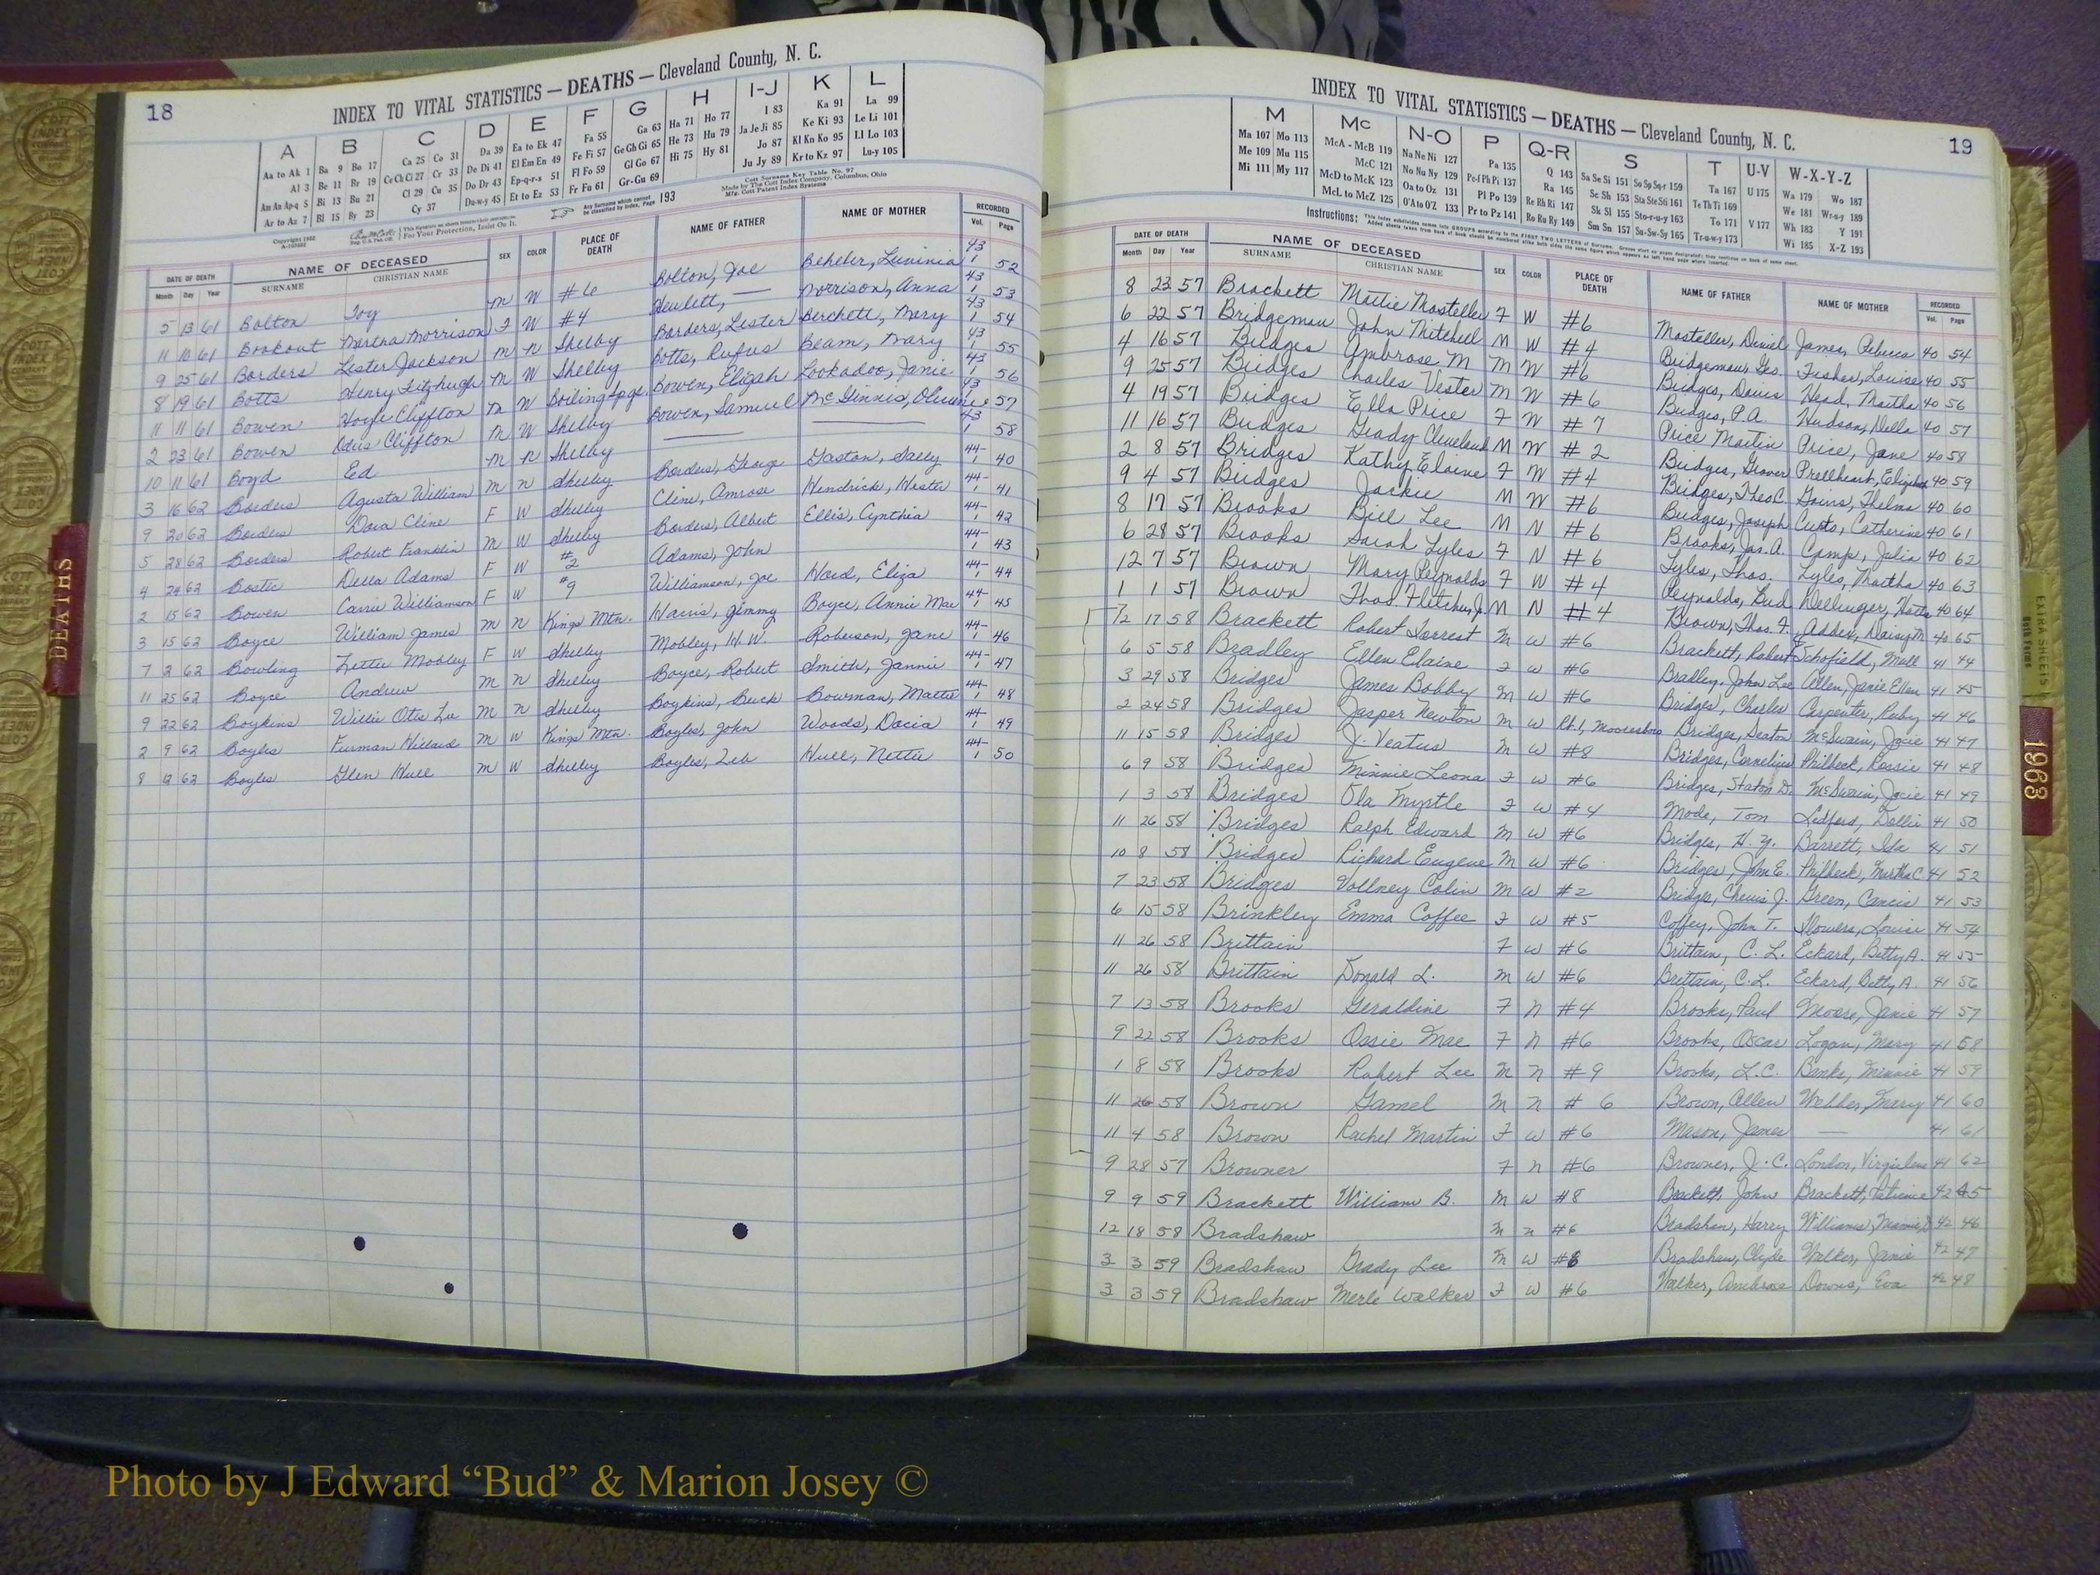 18
INDEX TO VITAL STATISTICS — DEATHS — Cleveland County, N. C.
A B C D E F G H I-J K L
Aa to Ak 1 Ba 9 Bo 17 Ca 25 Co 31 Da 39 Ea to Ek 47 Fa 55 Ga 63 Ha 71 Ho 77 I 83 Ka 91 La 99
Al 3 Be 11 Br 19 Ce Ch Ci 27 Cr 33 De Di 41 El Em En 49 Fe Fi 57 Ge Gh Gi 65 He 73 Hu 79 Ja Je Ji 85 Ke Ki 93 Le Li 101
Am An Ap-q 5 Bi 13 Bu 21 Cl 29 Cu 35 Do Dr 43 Ep-q-r-s 51 Fl Fo 59 Gl Go 67 Hi 75 Hy 81 Jo 87 Kl Kn Ko 95 Ll Lo 103
Ar to Az 7 Bl 15 By 23 Cy 37 Du-w-y 45 Et to Ez 53 Fr Fu 61 Gr-Gu 69 Ju Jy 89 Kr to Kz 97 Lu-y 105
Cott Surname Key Table No. 97
Made by The Cott Index Company, Columbus, Ohio
Mfrs. Cott Patent Index Systems
Any Surname which cannot be classified by Index, Page 193
Copyright 1952
For Your Protection, Insist On It.
DATE OF DEATH NAME OF DECEASED SEX COLOR PLACE OF DEATH NAME OF FATHER NAME OF MOTHER RECORDED
Month Day Year SURNAME CHRISTIAN NAME Vol. Page
5 13 61 Bolton Toy M W #6 Bolton, Joe Beheler, Luvinia 43-1 52
11 10 61 Bookout Martha Morrison F W #4 Hewlett, — Morrison, Anna 43-1 53
9 25 61 Borders Lester Jackson M N Shelby Borders, Lester Birchett, Mary 43-1 54
8 19 61 Botts Henry Fitzhugh M W Shelby Botts, Rufus Beam, Mary 43-1 55
11 11 61 Bowen Hoyle Cliffton M W Boiling Spgs. Bowen, Elijah Lookadoo, Janie 43-1 56
2 23 61 Bowen Odis Cliffton M W Shelby Bowen, Samuel McGinnis, 43-1 57
10 11 61 Boyd Ed M N Shelby — — 43-1 58
3 16 62 Borders Agusta William M N Shelby Borders, George Gaston, Sally 44-1 40
9 20 62 Borders Dora Cline F W Shelby Cline, Amrose Hendrick, Hester 44-1 41
5 28 62 Borders Robert Franklin M W Shelby Borders, Albert Ellis, Cynthia 44-1 42
4 24 62 Bostic Della Adams F W #2 Adams, John 44-1 43
2 15 62 Bowen Carrie Williamson F W #9 Williamson, Joe Hord, Eliza 44-1 44
3 15 62 Boyce William James M N Kings Mtn. Harris, Jimmy Boyce, Annie Mae 44-1 45
7 2 62 Bowling Lettie Mobley F W Shelby Mobley, H. W. Roberson, Jane 44-1 46
11 25 62 Boyce Andrew M N Shelby Boyce, Robert Smith, Jannie 44-1 47
9 22 62 Boykins Willie Otis Lee M N Shelby Boykins, Buck Bowman, Mattie 44-1 48
2 9 62 Boyles Furman Hillard M W Kings Mtn. Boyles, John Woods, Docia 44-1 49
8 12 62 Boyles Glen Hull M W Shelby Boyles, Zeb Hull, Nettie 44-1 50
19
INDEX TO VITAL STATISTICS — DEATHS — Cleveland County, N. C.
M Mc N-O P Q-R S T U-V W-X-Y-Z
Ma 107 Mo 113 McA - McB 119 Na Ne Ni 127 Pa 135 Q 143 Sa Se Si 151 So Sp Sq-r 159 Ta 167 U 175 Wa 179 Wo 187
Me 109 Mu 115 McC 121 No Nu Ny 129 Pe-f Ph Pi 137 Ra 145 Sc Sh 153 Sta Ste Sti 161 Te Th Ti 169 We 181 Wr-u-y 189
Mi 111 My 117 McD to McK 123 Oa to Oz 131 Pl Po 139 Re Rh Ri 147 Sk Sl 155 Sto-r-u-y 163 To 171 V 177 Wh 183 Y 191
McL to McZ 125 O'A to O'Z 133 Pr to Pz 141 Ro Ru Ry 149 Sm Sn 157 Su-Sw-Sy 165 Tr-u-w-y 173 Wi 185 X-Z 193
DATE OF DEATH NAME OF DECEASED SEX COLOR PLACE OF DEATH NAME OF FATHER NAME OF MOTHER RECORDED
Month Day Year SURNAME CHRISTIAN NAME Vol. Page
8 23 57 Brackett Mattie Mosteller F W #6 Mosteller, Daniel James, Rebecca 40 54
6 22 57 Bridgeman John Mitchell M W #4 Bridgeman, Geo. Fisher, Louise 40 55
4 16 57 Bridges Ambrose M M W #6 Bridges, Davis Head, Martha 40 56
9 25 57 Bridges Charles Vester M W #6 Bridges, P.A. Hudson, Della 40 57
4 19 57 Bridges Ella Price F W #7 Price Martin Price, Jane 40 58
11 16 57 Bridges Grady Cleveland M W #2 Bridges, Grover 40 59
2 8 57 Bridges Kathy Elaine F W #4 Bridges, Theo C. Goins, Thelma 40 60
9 4 57 Bridges Jackie M W #6 Bridges, Joseph Curto, Catherine 40 61
8 17 57 Brooks Bill Lee M N #6 Brooks, Jas. A. Camp, Julia 40 62
6 28 57 Brooks Sarah Lyles F N #6 Lyles, Thos. Lyles, Martha 40 63
12 7 57 Brown Mary Reynolds F W #4 Reynolds, Bud Dellinger, 40 64
1 1 57 Brown Thos. Fletcher, Jr. M N #4 Brown, Thos. F. Addex, Daisy M 40 65
7 17 58 Brackett Robert Forrest M W #6 Brackett, Robert E Schofield, Mull 41 44
6 5 58 Bradley Ellen Elaine F W #6 Bradley, John Lee Allen, Janie Ellen 41 45
3 29 58 Bridges James Bobby M W #6 Bridges, Charles Carpenter, Ruby 41 46
2 24 58 Bridges Jasper Newton M W Rt. 1, Mooresboro Bridges, Seaton McSwain, Jocie 41 47
11 15 58 Bridges J. Veatus M W #8 Bridges, Cornelius Philbeck, Rossie 41 48
6 9 58 Bridges Minnie Leona F W #6 Bridges, Staton D. McSwain, Jocie 41 49
1 3 58 Bridges Ola Myrtle F W #4 Mode, Tom Ledford, Dollie 41 50
11 26 58 Bridges Ralph Edward M W #6 Bridges, H. Y. Barrett, Ida 41 51
10 8 58 Bridges Richard Eugene M W #6 Bridges, John E. Philbeck, Martha C 41 52
7 23 58 Bridges Vollney Colin M W #2 Bridges, J. Green, Cancis 41 53
6 15 58 Brinkley Emma Coffee F W #5 Coffey, John T. Flowers, Louise 41 54
11 26 58 Brittain F W #6 Brittain, C. L. Eckard, Betty A. 41 55
11 26 58 Brittain Donald L. M W #6 Brittain, C. L. Eckard, Betty A. 41 56
7 13 58 Brooks Geraldine F N #4 Brooks, Paul Moore, Janie 41 57
9 22 58 Brooks Ossie Mae F N #6 Brooks, Oscar Logan, Mary 41 58
1 8 58 Brooks Robert Lee M N #9 Brooks, L.C. Banks, Minnie 41 59
11 26 58 Brown Gamel M N # 6 Brown, Allen Webber, Mary 41 60
11 4 58 Brown Rachel Martin F W #6 Mason, James — 41 61
9 28 57 Browner F N #6 Browner, J. C. London, Virgielene 41 62
9 9 59 Brackett William B. M W #8 Brackett, John Brackett, Patience 42 45
12 18 58 Bradshaw M N #6 Bradshaw, Harry Williams, Mamie 42 46
3 3 59 Bradshaw Grady Lee M W #6 Bradshaw, Clyde Walker, Janie 42 47
3 3 59 Bradshaw Merle Walker F W #6 Walker, Ambrose Downs, Eva 42 48
DEATHS
EXTRA SHEETS
1963
COTT INDEX COMPANY
Photo by J Edward “Bud” & Marion Josey ©